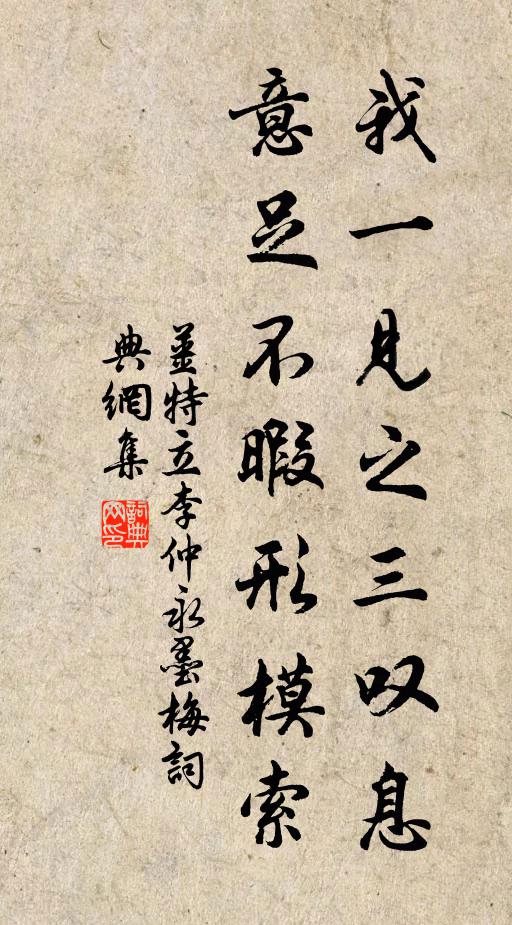 我一见之三叹息
意足不暇形模索
姜特立李仲永墨梅詞
典網集
詞典网印